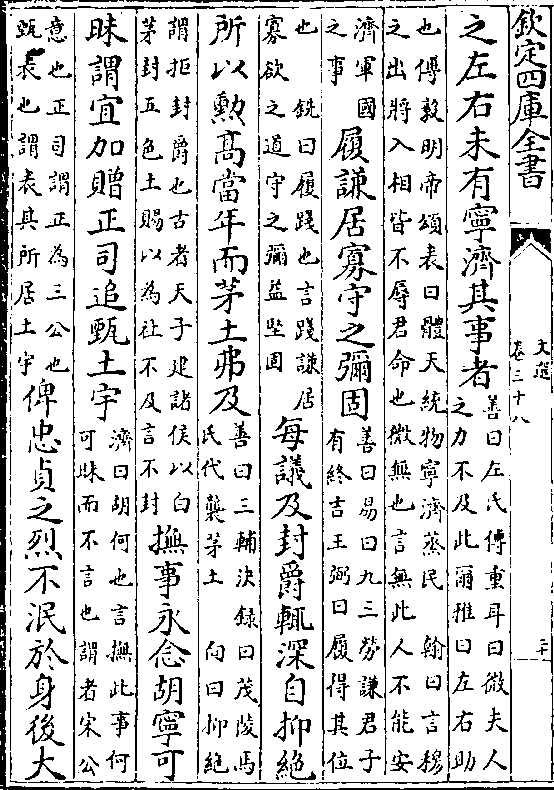 欽定四庫全書
文選
卷三十八
之左右未有寧濟其事者
善曰左氏傳重耳曰微夫人
之力不及此爾雅曰左右助
也傅毅明帝頌表曰體天統物寧濟蒸民 翰曰言穆
之出將入相皆不辱君命也微無也言無此人不能安
濟軍國
之事
履謙居寡守之彌固
善曰易曰九三勞謙君子
有終吉王弼曰履得其位
也 銑曰履踐也言踐謙居
寡欲之道守之彌益堅固
每議及封爵輒深自抑絶
所以勲髙當年而茅土弗及
善曰三輔決録曰茂陵馬
氏代襲茅土 向曰抑絶
謂拒封爵也古者天子建諸侯以白
茅封五色土賜以為社不及言不封
撫事永念胡寧可
昧謂宜加贈正司追甄土宇
濟曰胡何也言撫此事何
可昧而不言也謂者宋公
意也正司謂正為三公也
甄表也謂表其所居土宇
俾忠貞之烈不泯於身後大